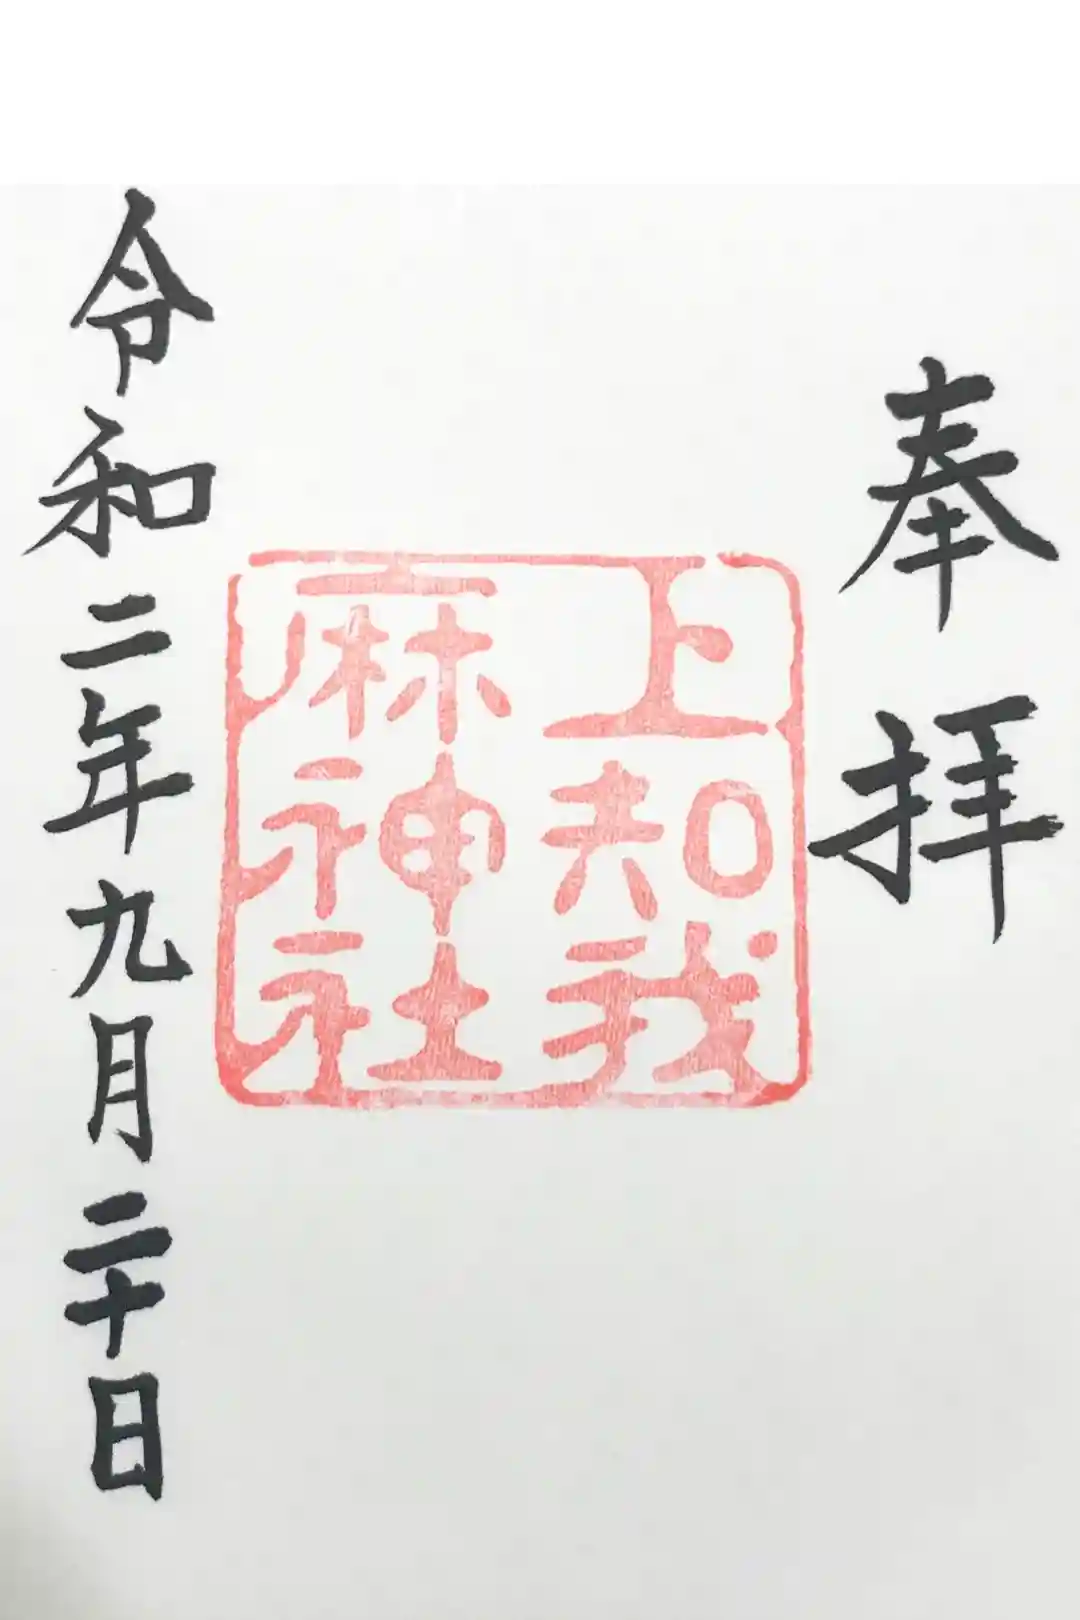 奉拝
上知我
麻神社
令和二年九月二十日